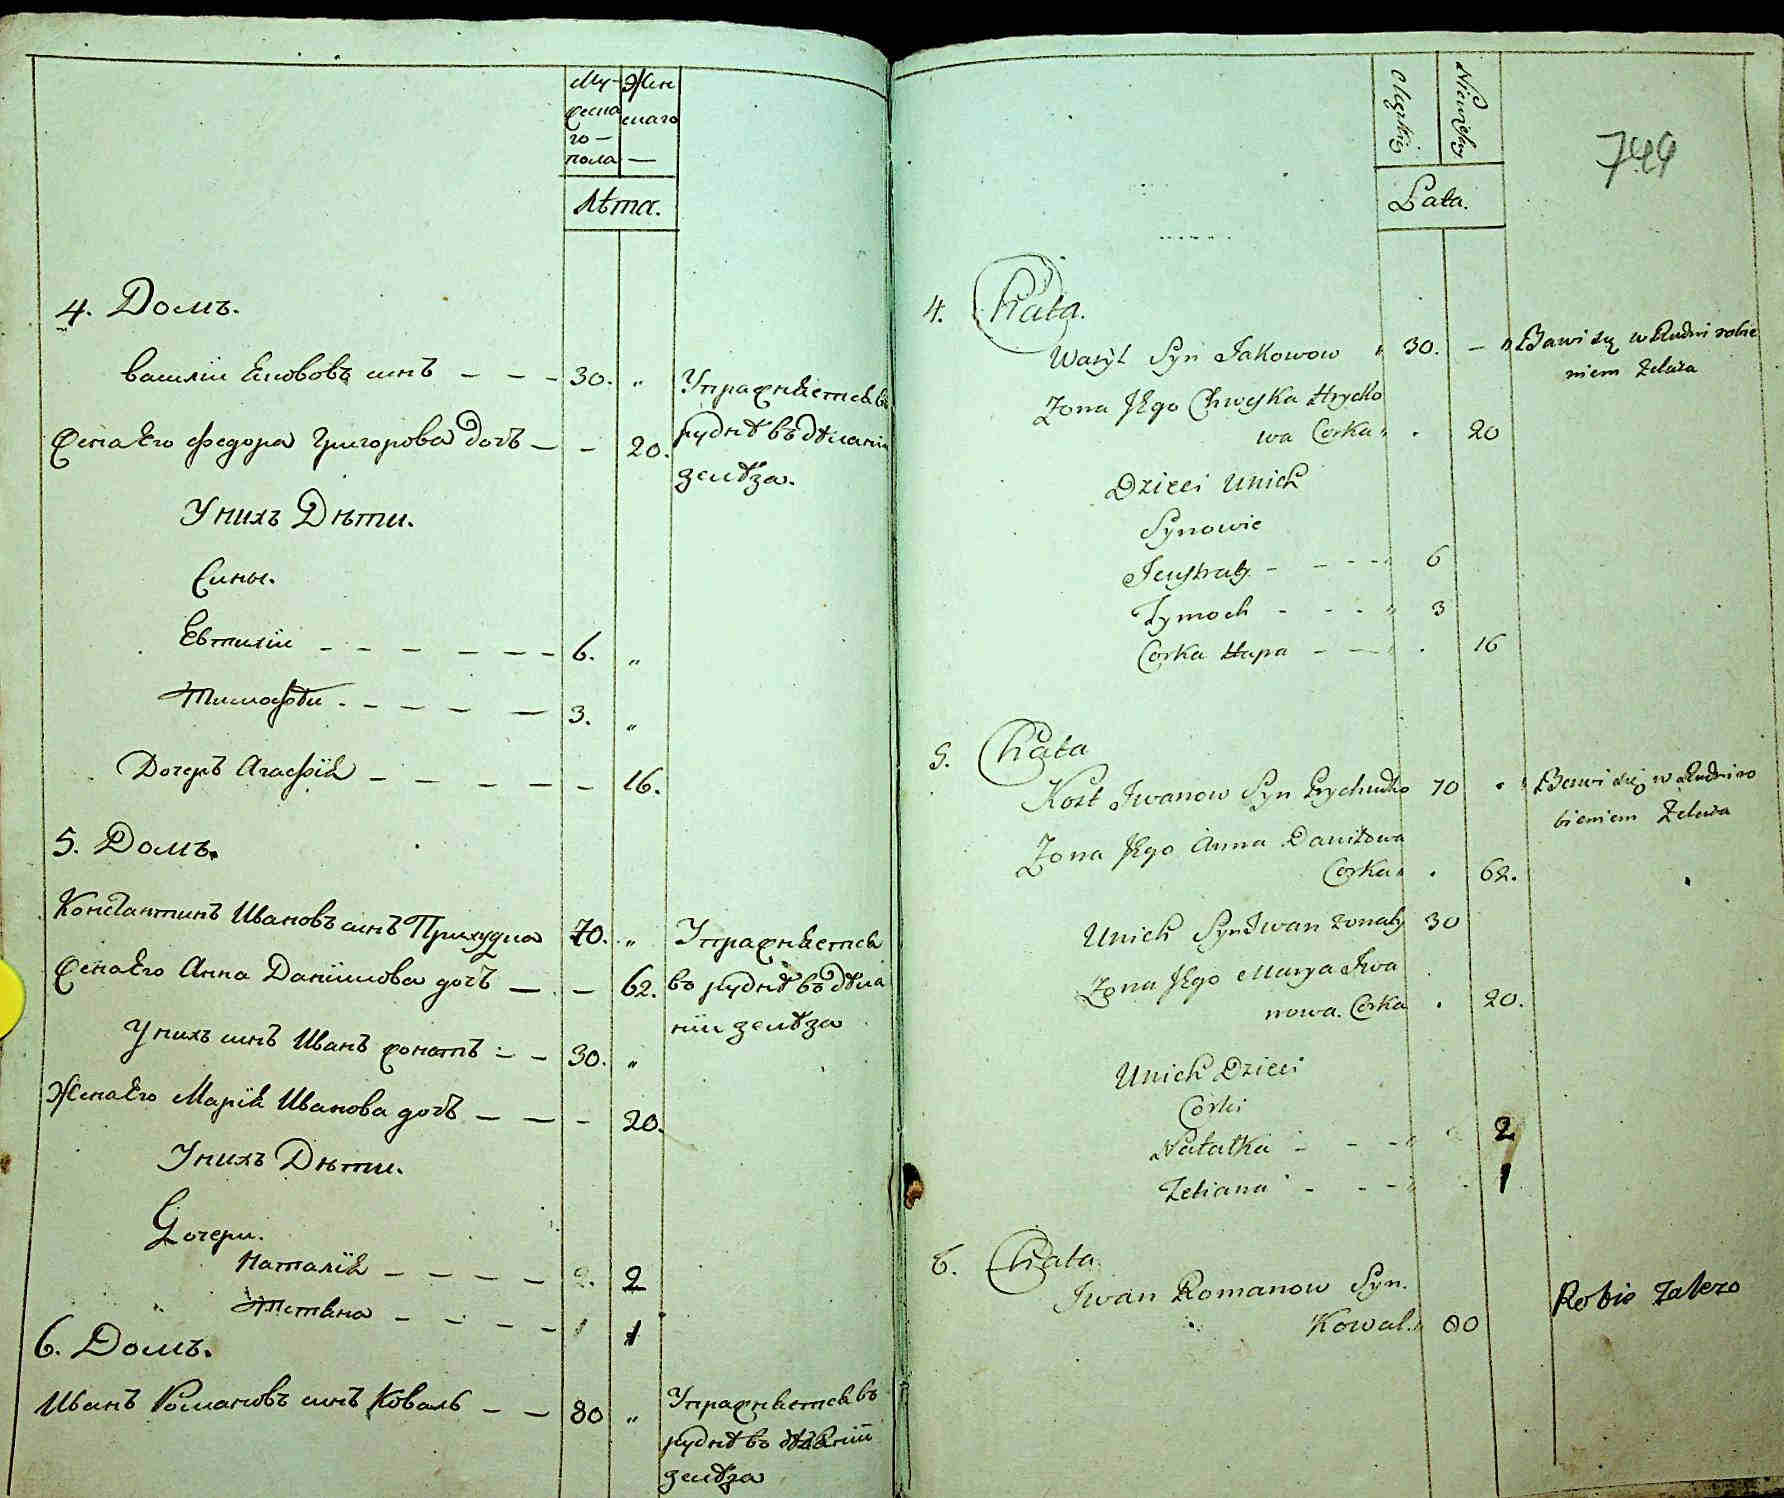 Му-
жеска
го —
пола
Жен
скаго
—
Лѣта.
4. Домъ.
Василій Якововъ синъ — — — 30. „
Упражняется въ
рудне въ дѣланіи
зелѣза.
жена Его Федора Григорова дочъ — — 20.
У нихъ Дѣти.
Сины.
Евтихій — — — — — — 6. „
Тимофѣи — — — — — 3. „
Дочеръ Агафія — — — — — 16.
5. Домъ.
Константинъ Ивановъ синъ Приходко 70. „
Упражняется
жена Его Анна Даниилова дочъ — — 62.
въ руднѣ въ дѣла
ніи зелѣза
У нихъ синъ Иванъ жонатъ — — 30. „
Жена Его Марія Иванова дочъ — — — 20.
У нихъ Дѣти.
Дочери.
Наталія — — — — 2. 2
Тетяна — — — — 1 1
6. Домъ.
Иванъ Романовъ синъ Коваль — — 80 „
Упражняется въ
руднѣ во дѣланіи
зелѣза
Męzkiey
Niewiesciey
Lata.
744
4. Chata.
Wasyl Syn Jakowow „ 30. — „
Bawi się w Rudni robie
niem Zelaza
Zona Jego Chweska Hrycko
wa Corka „ . 20
Dzieci Unich
Synowie
Jewstraty - - - - „ 6
Tymoch - - - - „ 3
Corka Hapa — — . 16
5. Chata
Kost Iwanow Syn Prychodko 70 „
Bawi się w Rudni ro
bieniem Zelaza
Zona Jego Anna Daniłowa
Corka „ . 62.
Unich Syn Iwan zonaty 30
Zona Jego Marya Iwa
nowa. Corka . 20.
Unich Dzieci
Corki
Natałka - - - - „ 2
Tetiana - - - - „ - 1
6. Chata.
Iwan Romanow Syn.
Kowal. „ 80
Robie Zalezo